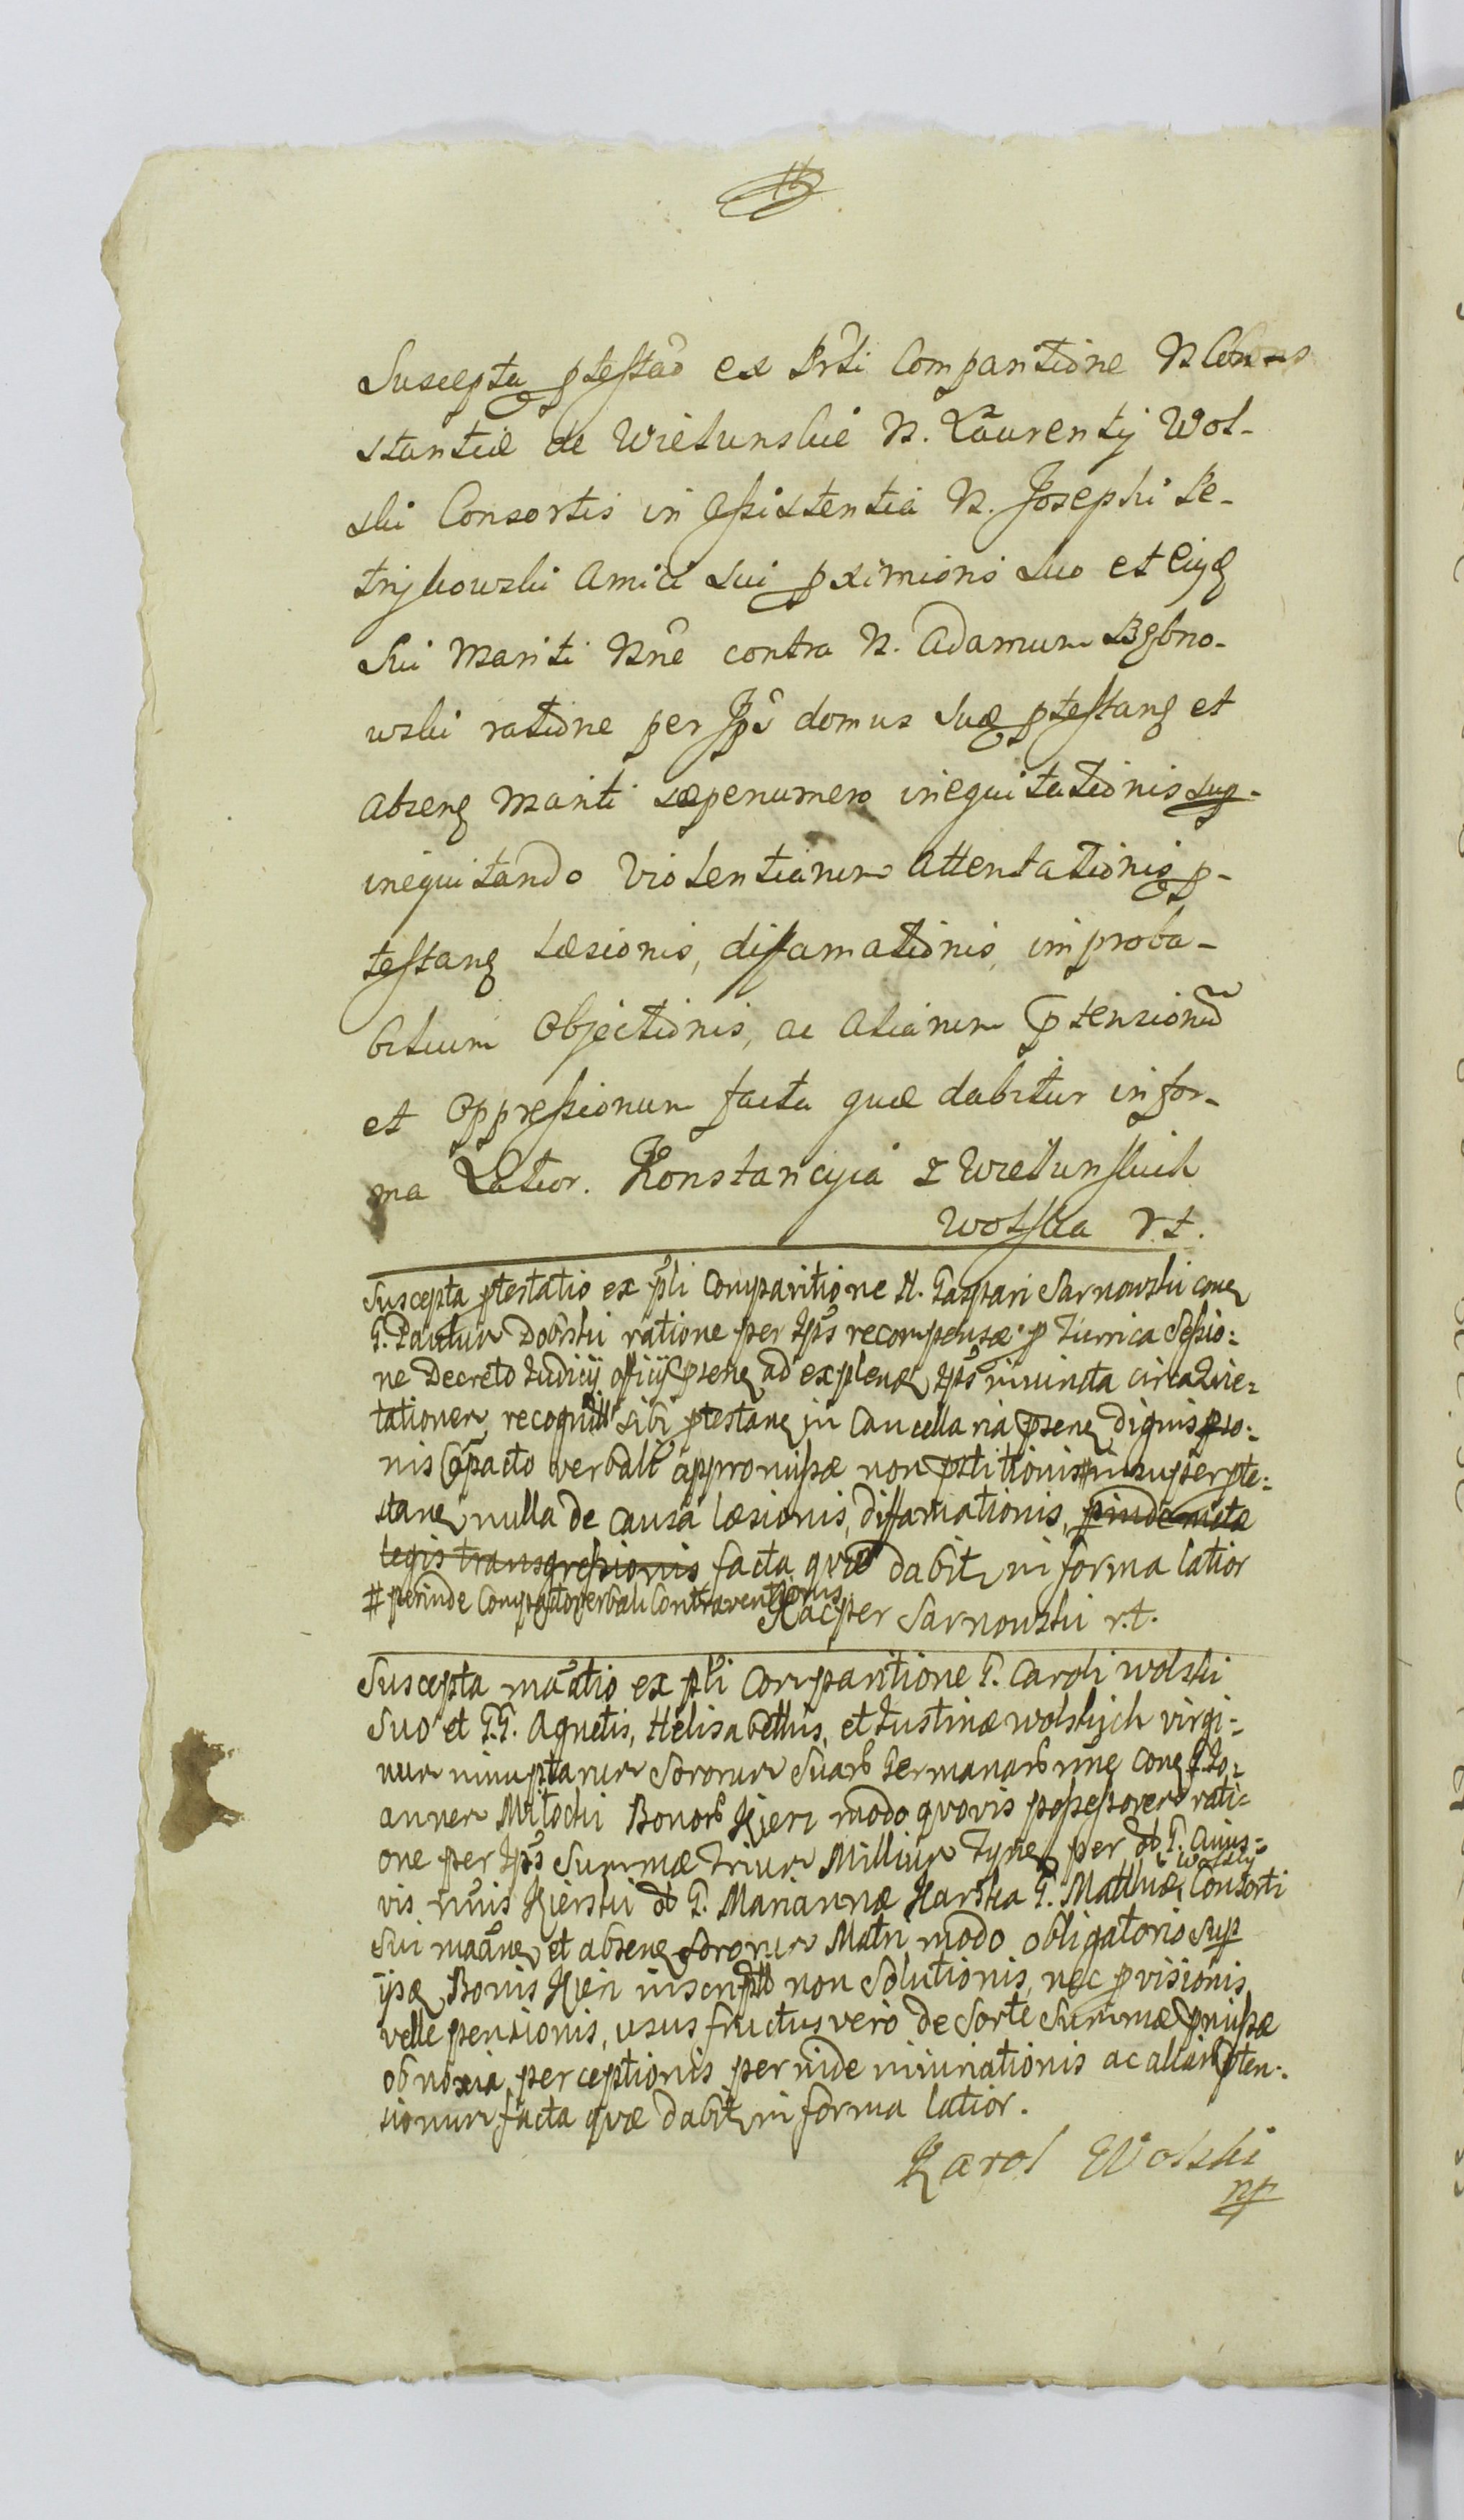 Suscepta ptestao ex Prsti Comparitione N Con
stantiæ de Wielunskie N. Laurentij Wol-
ski Consortis in assistentia N. Josephi Pe-
trykowski amici sui pximioris suo et eiusq
sui Mariti Nne contra N. Adamum
wski ratione per Jps domus suæ ptestanq et
absenq Mariti sæpenumero inequitationis sup-
inequitando violentiarum attentationis p-
testanq læsionis, diffamationis, improba-
bilium objectionis, ac aliarum ptensionu
et oppressionum facta quæ dabitur in for-
ma Latior. Konstancyia z Wielunskich
Wolska r.t.
Suscepta ptestatio ex psti Comparitione N. Gaspari Sarnowski conq
G. Paulum Dobski ratione per Jps recompensæ p Turrica sessio-
ne Decreto Judicij officij psenq ad explenq Jps iniuncta circa Quie-
tationem recognitt sibi ptestanq in Cancellaria psenq dignis pso-
nis Compacto verbali appromissæ non pstitionis # insuper pte-
stanq nulla de causa læsionis, diffamationis, pinde notæ
legis transgressionis facta quæ dabit in forma latior
# perinde Compacto verbali Contraventionis
Kacper Sarnowski r.t.
Suscepta maatio ex psti Comparitione G. Caroli Wolski
suo et G.G. Agnetis, Helisabethis, et Justinæ Wolskich virgi-
num innuptarum Sororum suarb Germanarb nne conq G. Jo-
annem Milocki Bonorb Kjeri modo quovis possessorem rati-
one per Jps Summæ Trium Millium Tynq per ob G. Cuius-
vis nnis Kierski ob G. Mariannæ Harska G. Mathiæ Wolski Consorti
sui maanq et absenq Sororum Matri modo obligatorio sup
ijsq Bonis Kjeri inscriptb non solutionis, nec pvisionis
velle pensionis, usus fructus vero de sorte Summæ pmissæ
obnoxia perceptionis perinde iniuriationis ac aliarb pten-
sionum facta quæ dabit in forma latior.
Karol Wolski
mp